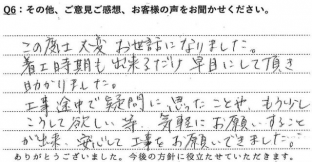 Q6：その他、ご意見ご感想、お客様の声をお聞かせください。
この度は大変お世話になりました。
着工時期も出来るだけ早目にして頂き
助かりました。
工事途中で疑問に思ったことや、もう少し
こうして欲しい等、気軽にお願いすること
が出来、安心して工事をお願いできました。
ありがとうございました。今後の方針に役立たせていただきます